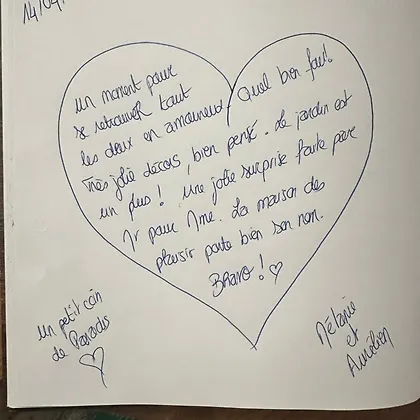 14/04/
un moment pour
se retrouver tout
les deux en amoureux. Quel bien fait.
Très jolie décors, bien pensé. Le jardin est
un plus ! Une jolie surprise faite par
Mr pour Mme. La maison des
plaisir porte bien son nom.
Bravo ! ♡
un petit coin
de Paradis
♡
Mélanie
et
Aurélien